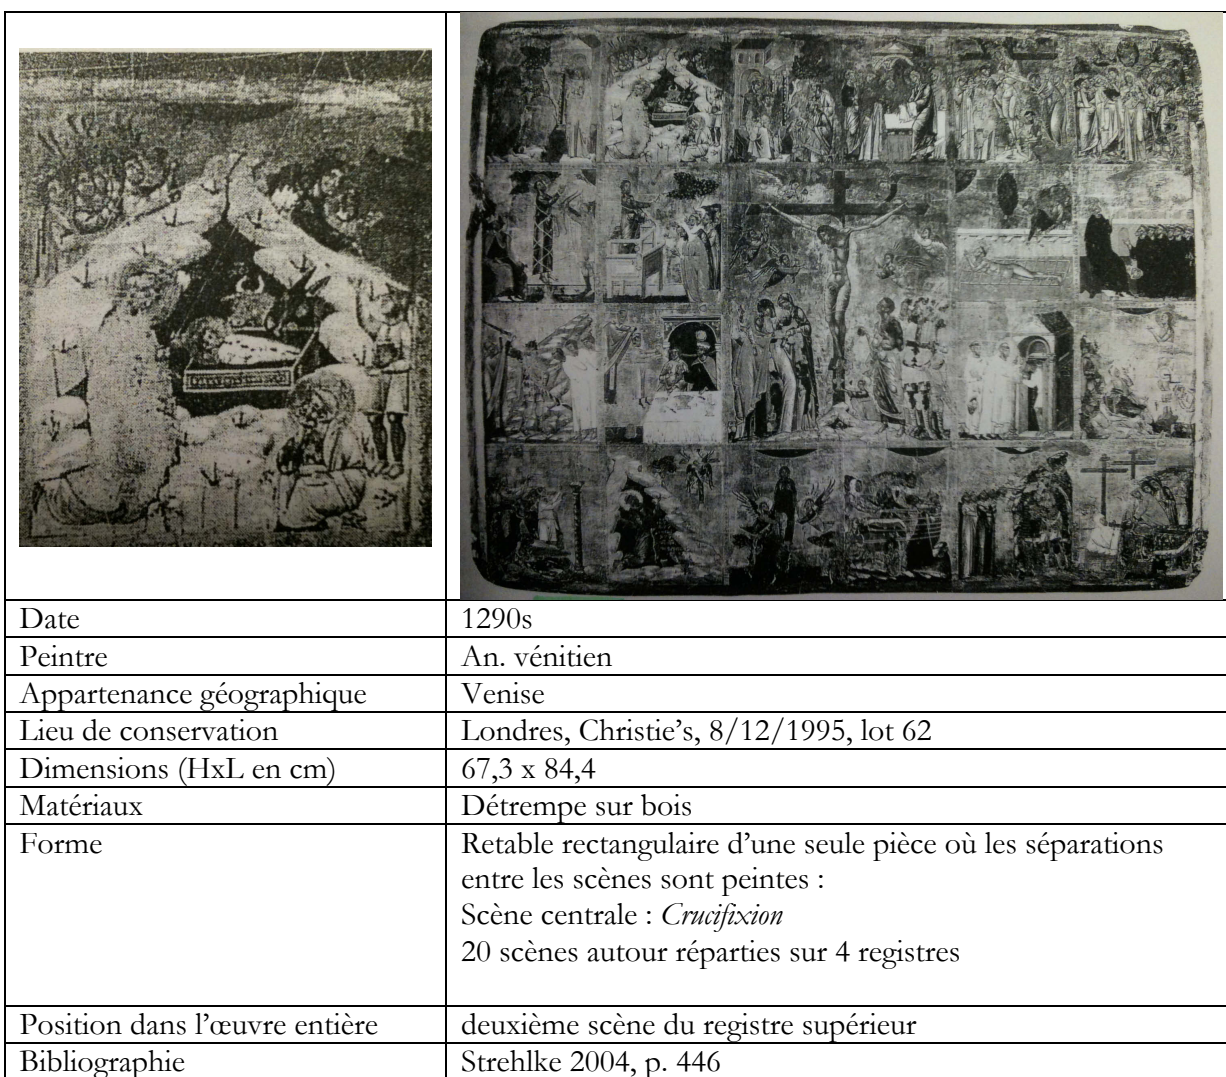 Date 1290s
Peintre An. vénitien
Appartenance géographique Venise
Lieu de conservation Londres, Christie’s, 8/12/1995, lot 62
Dimensions (HxL en cm) 67,3 x 84,4
Matériaux Détrempe sur bois
Forme Retable rectangulaire d’une seule pièce où les séparations
entre les scènes sont peintes :
Scène centrale : Crucifixion
20 scènes autour réparties sur 4 registres
Position dans l’œuvre entière deuxième scène du registre supérieur
Bibliographie Strehlke 2004, p. 446